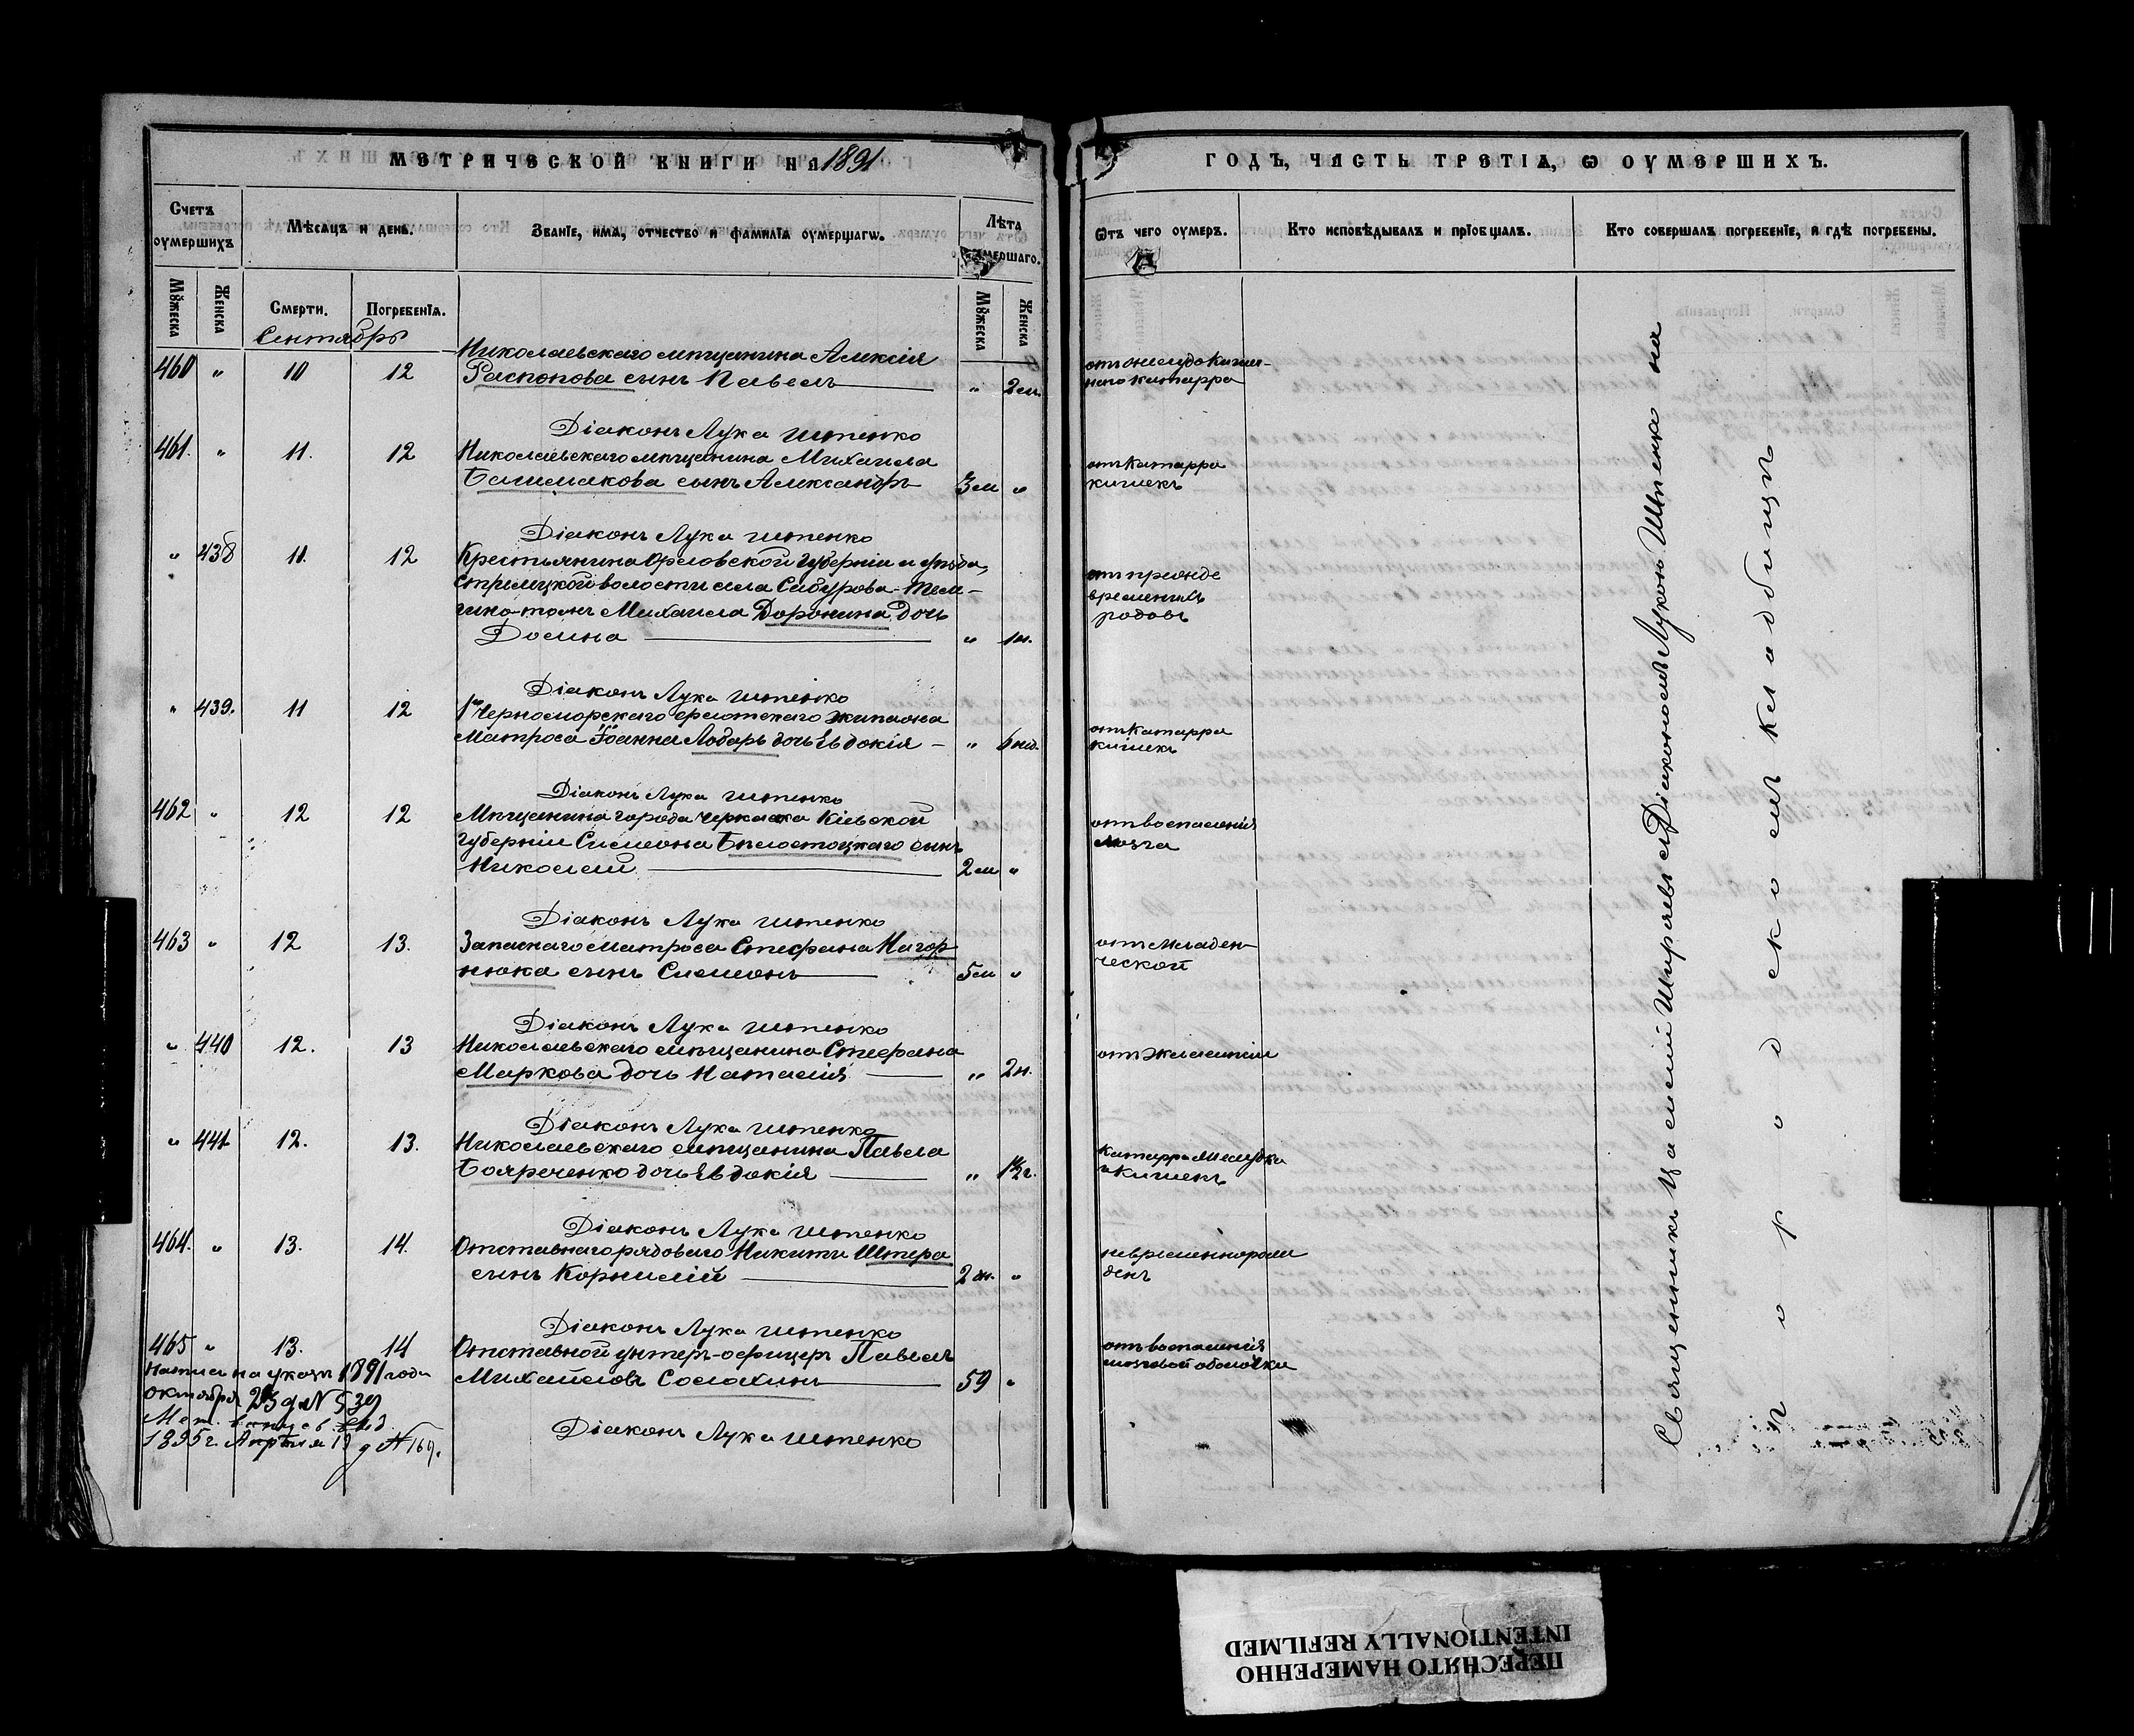 МЕТРИЧЕСКОЙ КНИГИ НА 1891
Счетъ оумершихъ
Мѣсяцъ и день.
Званіе, имя, отчество и фамилія оумершагѡ.
Лѣта оумершаго.
Мꙋжеска
Женска
Смерти.
Погребенія.
Мꙋжеска
Женска
Сентябрь
460 " 10 12
Николаевскаго мѣщанина Алексія
Распопова сынъ Павелъ
" 2 м.
Діаконъ Лука Шпенко
461. " 11. 12
Николаевскаго мѣщанина Михаила
Башмакова сынъ Александръ
3 м "
Діаконъ Лука Шпенко
" 438 11. 12
Крестьянина Орловской губерніи и уѣзда,
Стрелецкой волости села
Михаила Доронина дочь
Домна
" 1 н.
Діаконъ Лука Шпенко
" 439. 11 12
1го Черноморскаго флотскаго экипажа
Матроса Іоанна Лобарь дочь Евдокія
" 6 нед.
Діаконъ Лука Шпенко
462 " 12 12
Мѣщанина города Черкаска Кіевской
губерніи Симеона Бѣлостоцкаго сынъ
Николай
2 м "
Діаконъ Лука Шпенко
463 " 12 13.
Запаснаго матроса Стефана Нагор-
нюка сынъ Симеонъ
5 м "
Діаконъ Лука Шпенко
" 440 12. 13
Николаевскаго мѣщанина Стефана
Маркова дочь Наталія
" 2 н.
Діаконъ Лука Шпенко
" 441 12. 13.
Николаевскаго мѣщанина Павла
Бояроченко дочь Евдокія
" 1½ г.
Діаконъ Лука Шпенко
464. " 13. 14.
Отставнаго рядоваго Никиты Штера
сынъ Корнилій
2 "
Діаконъ Лука Шпенко
465 " 13. 14
Отставной унтеръ-офицеръ Павелъ
Михайловъ Солохинъ
59 "
на указъ 1891 года
Октября 23 д. №
Мет.
1895 г. Апрѣля 19 д № 169.
Діаконъ Лука Шпенко
ГОДЪ, ЧАСТЬ ТРЕТІЯ, Ѡ ОУМЕРШИХЪ.
Ѿтъ чего оумеръ.
Кто исповѣдывалъ и пріобщалъ.
Кто совершалъ погребеніе, и гдѣ погребены.
отъ желудо кишеч-
наго катарра
отъ катарра
кишекъ
отъ прежде
временныхъ
родовъ
отъ катарра
кишекъ
отъ воспаленія
мозга
отъ младен-
ческой
отъ
катарра желудка
и кишекъ
невременнорож
денъ
отъ воспаленія
мозговой оболочки
Священникъ Цамай Ширяевъ съ Діакономъ Лукою Шпенко на
городскомъ кладбищѣ
ПЕРЕСНЯТО НАМЕРЕННО
INTENTIONALLY REFILMED